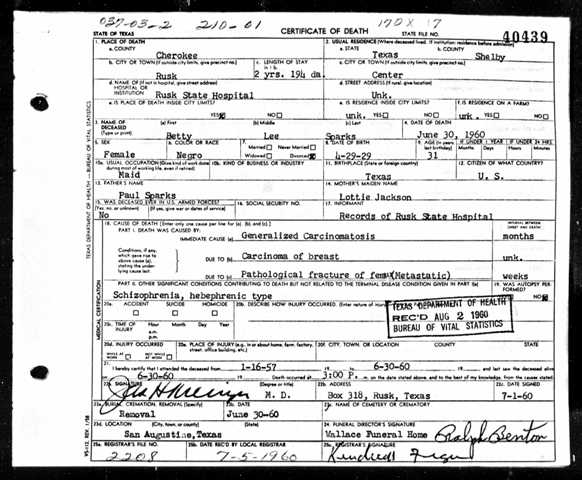 037-03-2 210-01 170X 17
STATE OF TEXAS CERTIFICATE OF DEATH STATE FILE NO. 40439
1. PLACE OF DEATH 2. USUAL RESIDENCE (Where deceased lived. If institution: residence before admission)
a. COUNTY Cherokee a. STATE Texas b. COUNTY Shelby
b. CITY OR TOWN (If outside city limits, give precinct no.) c. LENGTH OF STAY in 1 b. c. CITY OR TOWN (If outside city limits, give precinct no.)
Rusk 2 yrs. 194 da. Center
d. NAME OF (If not in hospital, give street address) HOSPITAL OR INSTITUTION d. STREET ADDRESS (If rural, give location)
Rusk State Hospital Unk.
e. IS PLACE OF DEATH INSIDE CITY LIMITS? e. IS RESIDENCE INSIDE CITY LIMITS? f. IS RESIDENCE ON A FARM?
YES NO unk. YES NO unk. YES NO
3. NAME OF DECEASED (Type or print) (a) First (b) Middle (c) Last 4. DATE OF DEATH
Betty Lee Sparks June 30, 1960
5. SEX 6. COLOR OR RACE 7. Married Never Married Widowed Divorced 8. DATE OF BIRTH 9. AGE (In years last birthday) IF UNDER 1 YEAR Months Days IF UNDER 24 HRS. Hours Min.
Female Negro 4-29-29 31
10a. USUAL OCCUPATION (Give kind of work done during most of working life, even if retired) 10b. KIND OF BUSINESS OR INDUSTRY 11. BIRTHPLACE (State or foreign country) 12. CITIZEN OF WHAT COUNTRY?
Maid Texas U. S.
13. FATHER'S NAME 14. MOTHER'S MAIDEN NAME
Paul Sparks Lottie Jackson
15. WAS DECEASED EVER IN U.S. ARMED FORCES? (Yes, no or unknown) (If yes, give war or dates of service) 16. SOCIAL SECURITY NO. 17. INFORMANT
No Records of Rusk State Hospital
18. CAUSE OF DEATH [Enter only one cause per line for (a), (b), and (c).] INTERVAL BETWEEN ONSET AND DEATH
PART I. DEATH WAS CAUSED BY:
IMMEDIATE CAUSE (a) Generalized Carcinomatosis months
Conditions, if any, which gave rise to above cause (a), stating the underlying cause last.
DUE TO (b) Carcinoma of breast unk.
DUE TO (c) Pathological fracture of femur(Metastatic) weeks
PART II. OTHER SIGNIFICANT CONDITIONS CONTRIBUTING TO DEATH BUT NOT RELATED TO THE TERMINAL DISEASE CONDITION GIVEN IN PART I(a) 19. WAS AUTOPSY PERFORMED?
Schizophrenia, hebephrenic type YES NO
20a. ACCIDENT SUICIDE HOMICIDE 20b. DESCRIBE HOW INJURY OCCURRED.
TEXAS DEPARTMENT OF HEALTH
REC'D AUG 2 1960
BUREAU OF VITAL STATISTICS
20c. TIME OF INJURY Hour Month Day Year
a.m.
p.m.
20d. INJURY OCCURRED WHILE AT WORK NOT WHILE AT WORK 20e. PLACE OF INJURY (e.g. in or about home, farm, factory, street, office building, etc.) 20f. CITY, TOWN, OR LOCATION COUNTY STATE
21. I hereby certify that I attended the deceased from 1-16-57 to 6-30-60 and last saw the deceased alive
6-30-60 Death occurred at 3:00 P. m. on the date stated above, and to the best of my knowledge, from the causes stated.
22a. SIGNATURE (Degree or title) M. D. 22b. ADDRESS Box 318, Rusk, Texas 22c. DATE SIGNED 7-1-60
23a. BURIAL, CREMATION, REMOVAL (Specify) 23b. DATE 23c. NAME OF CEMETERY OR CREMATORY
Removal June 30-60
23d. LOCATION (City, town, or county) (State) 24. FUNERAL DIRECTOR'S SIGNATURE
San Augustine, Texas Wallace Funeral Home Ralph Benton
25a. REGISTRAR'S FILE NO. 25b. DATE REC'D BY LOCAL REGISTRAR 25c. REGISTRAR'S SIGNATURE
2208 7-5-1960 Kindred
TEXAS DEPARTMENT OF HEALTH — BUREAU OF VITAL STATISTICS
MEDICAL CERTIFICATION
VS-112, REV. 1/58